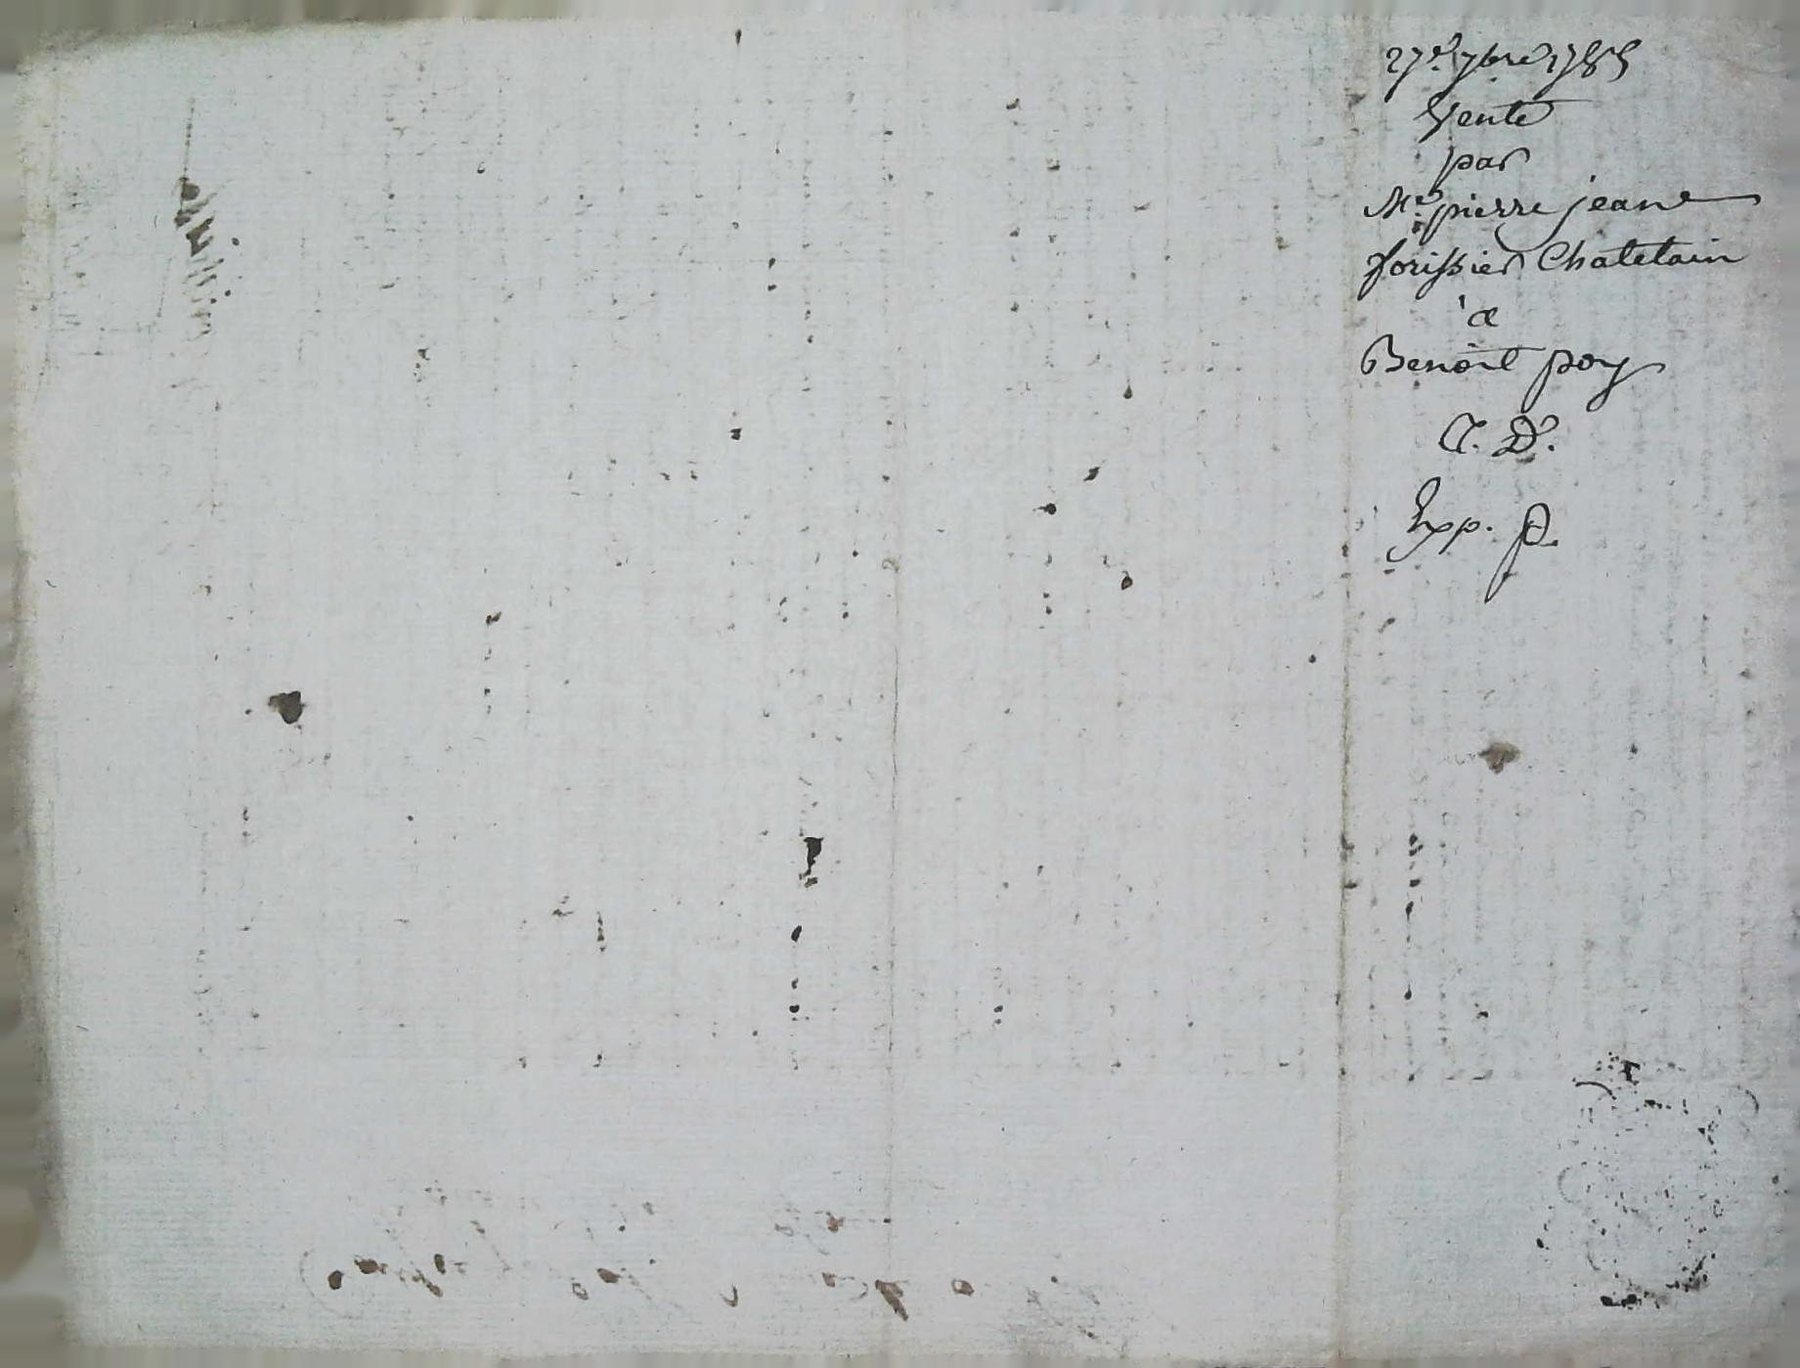 27e. 7bre 1785
Vente
par
Me. pierre jean
forissier Chatelain
à
Benoit poy
Exp. p.